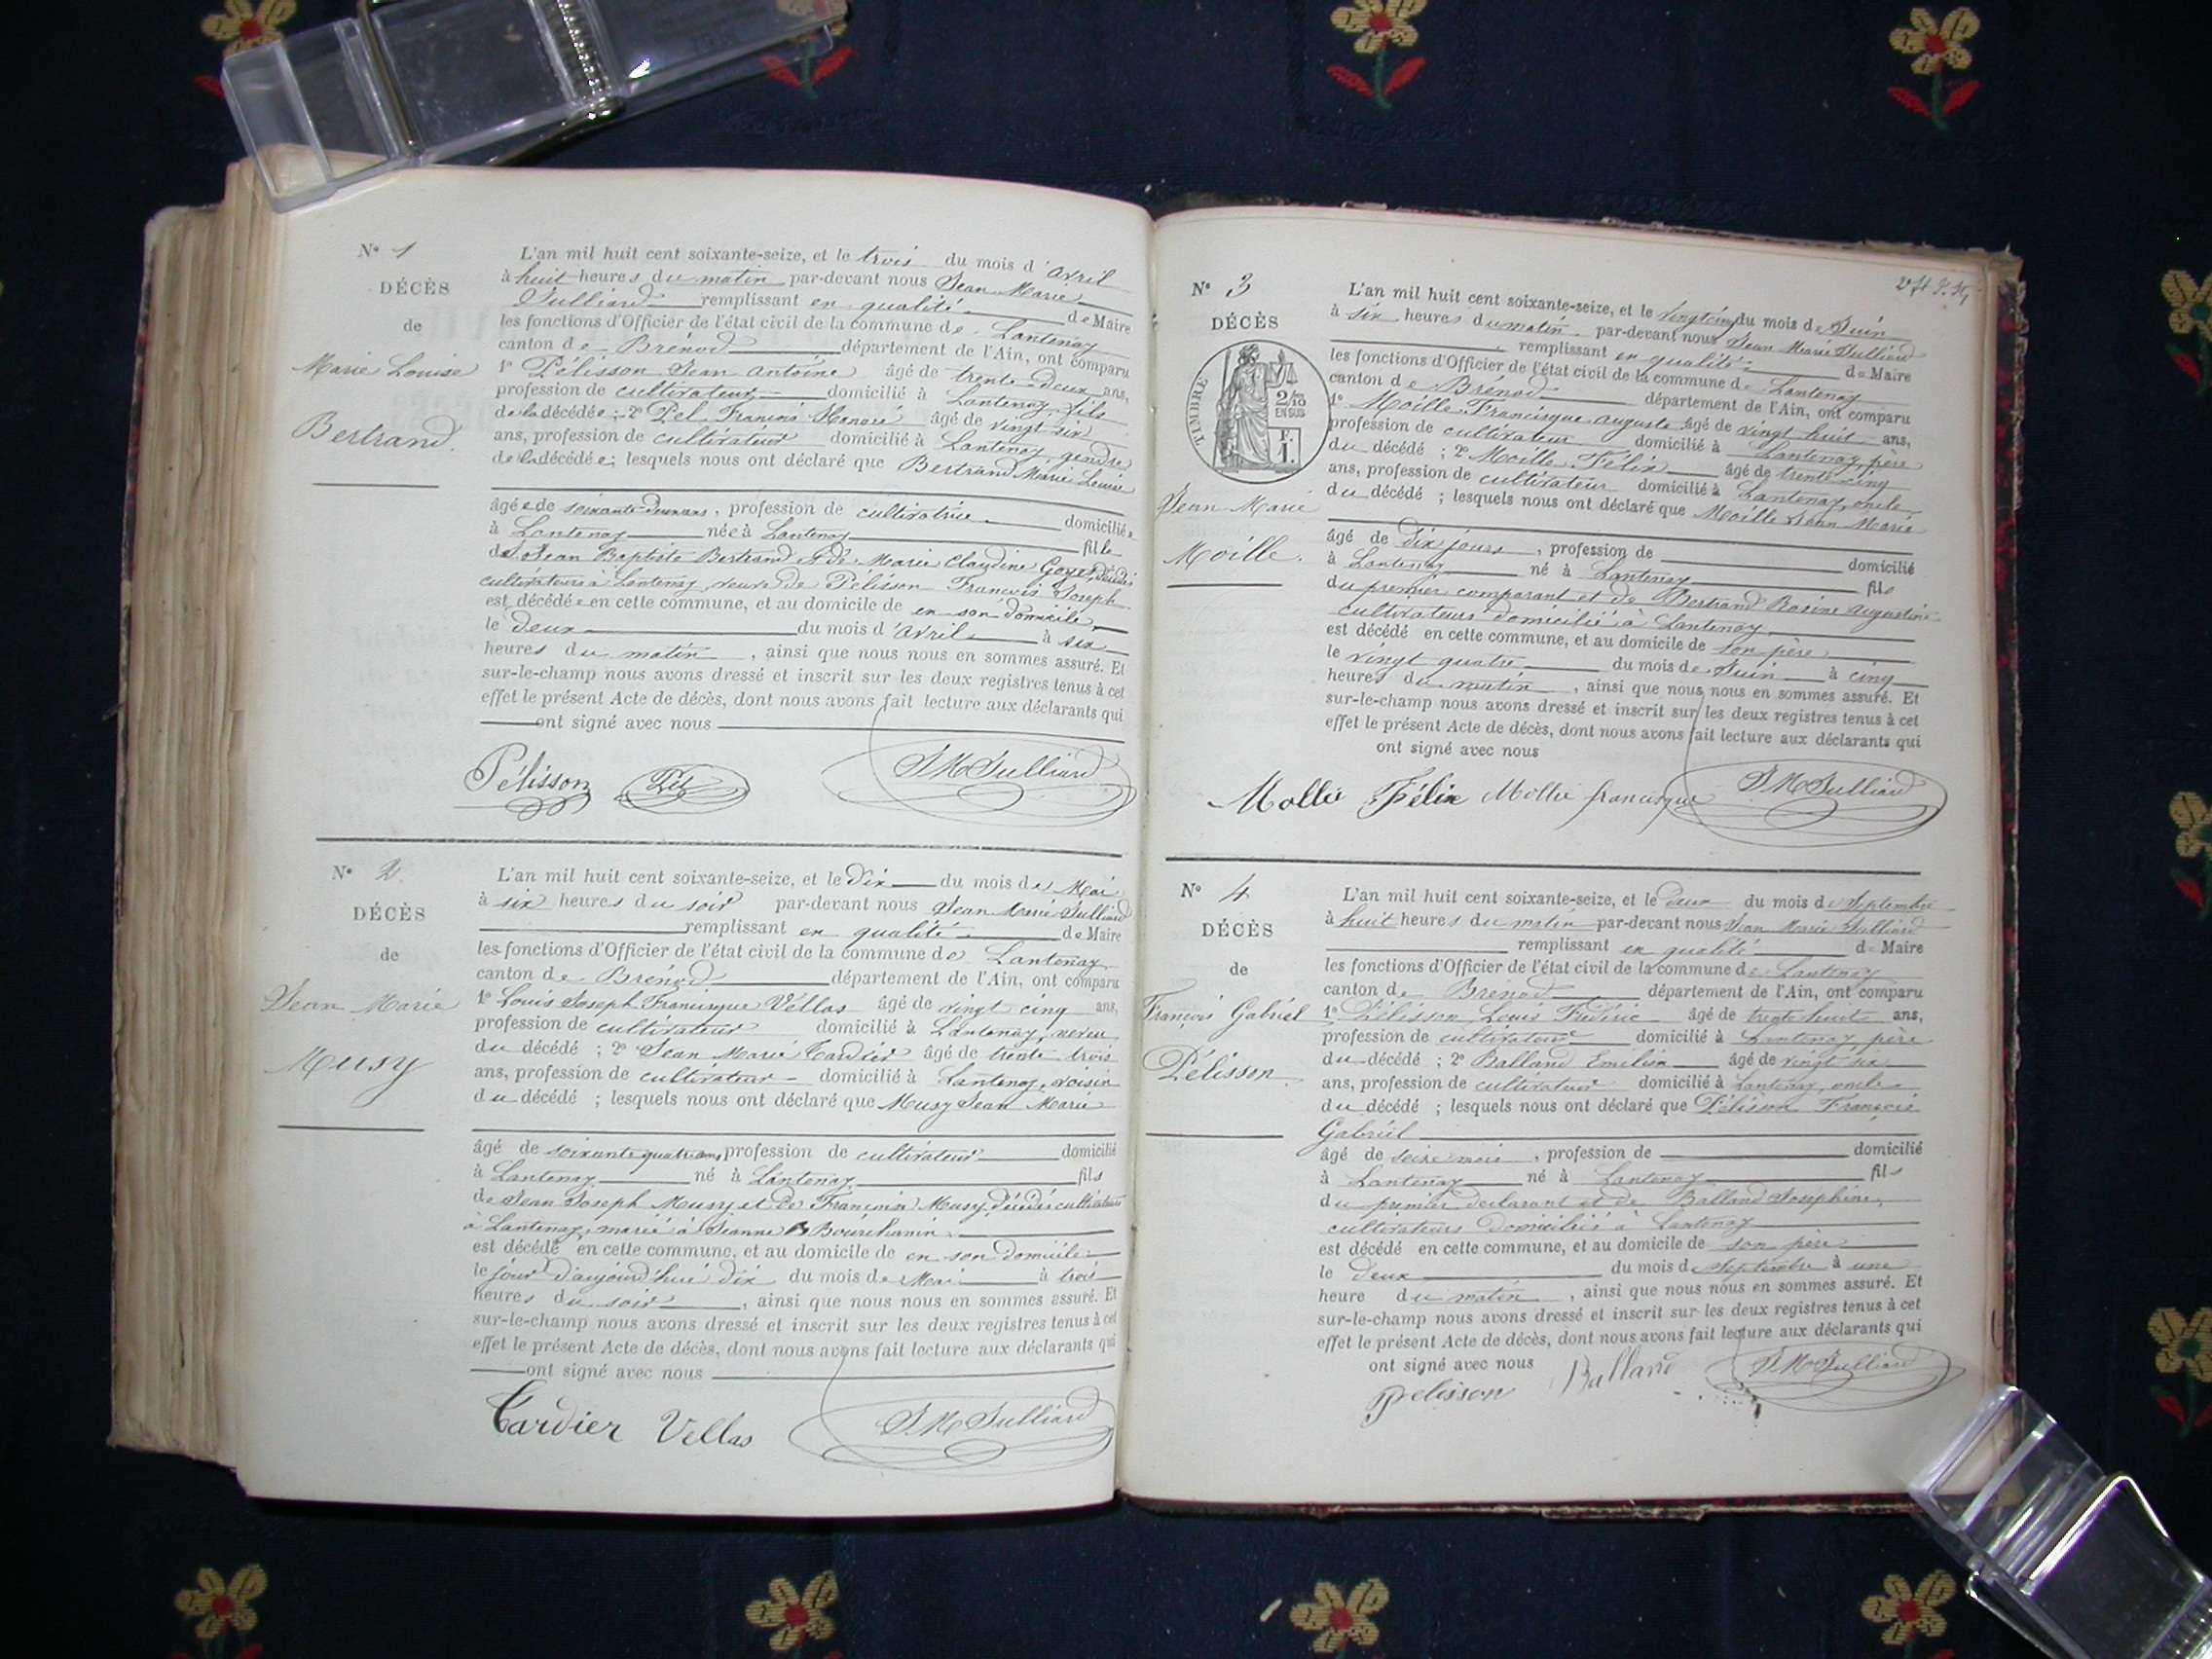 N° 1
DÉCÈS
de
Marie Louise
Bertrand.
L'an mil huit cent soixante-seize, et le trois du mois d'avril
à huit heures du matin par-devant nous Jean Marie
Julliard remplissant en qualité de Maire
les fonctions d'Officier de l'état civil de la commune de Lantenay
canton de Brénod département de l'Ain, ont comparu
1° Pélisson Jean Antoine âgé de trente-deux ans,
profession de cultivateur domicilié à Lantenay, fils
de la décédée ; 2° Pel François Honoré âgé de vingt six
ans, profession de cultivateur domicilié à Lantenay gendre
de la décédée ; lesquels nous ont déclaré que Bertrand Marie Louise
âgée de soixante-deux ans, profession de cultivatrice domiciliée
à Lantenay née à Lantenay fille
de Jean Baptiste Bertrand et de Marie Claudine Goyet, décédés
cultivateurs à Lantenay, veuve de Pélisson François Joseph
est décédée en cette commune, et au domicile de en son domicile
le deux du mois d'avril à six
heures du matin, ainsi que nous nous en sommes assuré. Et
sur-le-champ nous avons dressé et inscrit sur les deux registres tenus à cet
effet le présent Acte de décès, dont nous avons fait lecture aux déclarants qui
ont signé avec nous
Pélisson Pel J M Julliard
N° 2
DÉCÈS
de
Jean Marie
Musy
L'an mil huit cent soixante-seize, et le dix du mois de Mai
à six heures du soir par-devant nous Jean Marie Julliard
remplissant en qualité de Maire
les fonctions d'Officier de l'état civil de la commune de Lantenay
canton de Brénod département de l'Ain, ont comparu
1° Louis Joseph Francisque Vellas âgé de vingt cinq ans,
profession de cultivateur domicilié à Lantenay, neveu
du décédé ; 2° Jean Marie Tardier âgé de trente trois
ans, profession de cultivateur domicilié à Lantenay, voisin
du décédé ; lesquels nous ont déclaré que Musy Jean Marie
âgé de soixante quatre ans, profession de cultivateur domicilié
à Lantenay né à Lantenay fils
de Jean Joseph Musy et de Françoise Musy, décédés cultivateurs
à Lantenay, marié à Jeanne
est décédé en cette commune, et au domicile de en son domicile
le jour d'aujourd'hui dix du mois de Mai à trois
heures du soir, ainsi que nous nous en sommes assuré. Et
sur-le-champ nous avons dressé et inscrit sur les deux registres tenus à cet
effet le présent Acte de décès, dont nous avons fait lecture aux déclarants qui
ont signé avec nous
Tardier Vellas J M Julliard
N° 3
DÉCÈS
TIMBRE
2/10
EN SUS
Jean Marie
Moille.
L'an mil huit cent soixante-seize, et le vingt cinq du mois de Juin
à six heures du matin par-devant nous Jean Marie Julliard
remplissant en qualité de Maire
les fonctions d'Officier de l'état civil de la commune de Lantenay
canton de Brénod département de l'Ain, ont comparu
1° Moille Francisque Auguste âgé de vingt huit ans,
profession de cultivateur domicilié à Lantenay, père
du décédé ; 2° Moille Félix âgé de trente cinq
ans, profession de cultivateur domicilié à Lantenay, oncle
du décédé ; lesquels nous ont déclaré que Moille Jean Marie
âgé de dix jours, profession de domicilié
à Lantenay né à Lantenay fils
du premier comparant et de Bertrand Rosine Augustine
cultivateurs domicilié à Lantenay
est décédé en cette commune, et au domicile de son père
le vingt quatre du mois de Juin à cinq
heures du matin, ainsi que nous nous en sommes assuré. Et
sur-le-champ nous avons dressé et inscrit sur les deux registres tenus à cet
effet le présent Acte de décès, dont nous avons fait lecture aux déclarants qui
ont signé avec nous
Mollie Félix Mollie francisque J M Julliard
N° 4
DÉCÈS
de
François Gabriel
Pélisson
L'an mil huit cent soixante-seize, et le deux du mois de Septembre
à huit heures du matin par-devant nous Jean Marie Julliard
remplissant en qualité de Maire
les fonctions d'Officier de l'état civil de la commune de Lantenay
canton de Brénod département de l'Ain, ont comparu
1° Pélisson Louis Fédéric âgé de trente huit ans,
profession de cultivateur domicilié à Lantenay père
du décédé ; 2° Balland Emilien âgé de vingt six
ans, profession de cultivateur domicilié à Lantenay, oncle
du décédé ; lesquels nous ont déclaré que Pélisson François
Gabriel
âgé de seize mois, profession de domicilié
à Lantenay né à Lantenay fils
du premier déclarant et de Balland Joséphine,
cultivateurs domiciliés à Lantenay
est décédé en cette commune, et au domicile de son père
le deux du mois de Septembre à une
heure du matin, ainsi que nous nous en sommes assuré. Et
sur-le-champ nous avons dressé et inscrit sur les deux registres tenus à cet
effet le présent Acte de décès, dont nous avons fait lecture aux déclarants qui
ont signé avec nous
Pelisson Balland J M Julliard